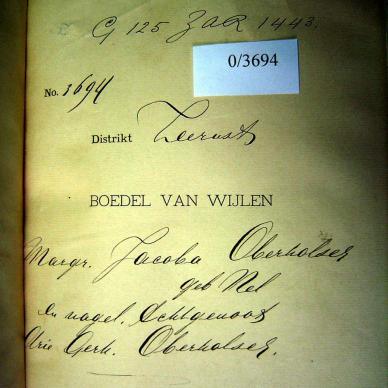 G 125 ZAR 1443.
0/3694
No. 3694
Distrikt Zeerust
BOEDEL VAN WIJLEN
Margr. Jacoba Oberholser
geb Nel
en nagel. Echtgenoot
Arie Gerh. Oberholser.